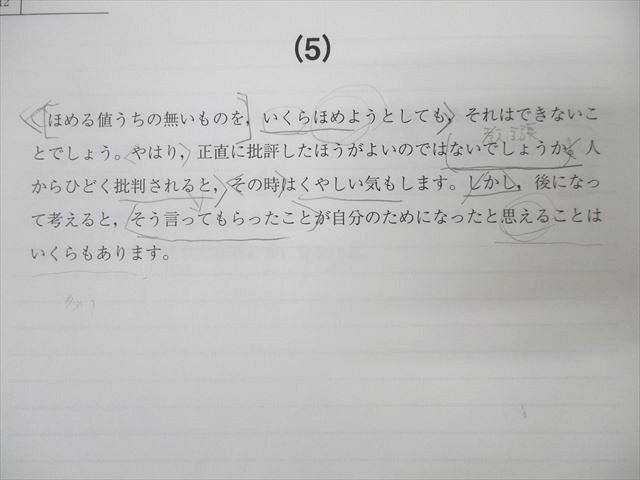 12
(5)
ほめる値うちの無いものを，いくらほめようとしても，それはできないこ
とでしょう。やはり，正直に批評したほうがよいのではないでしょうか。人
からひどく批判されると，その時はくやしい気もします。しかし，後になっ
て考えると，そう言ってもらったことが自分のためになったと思えることは
いくらもあります。